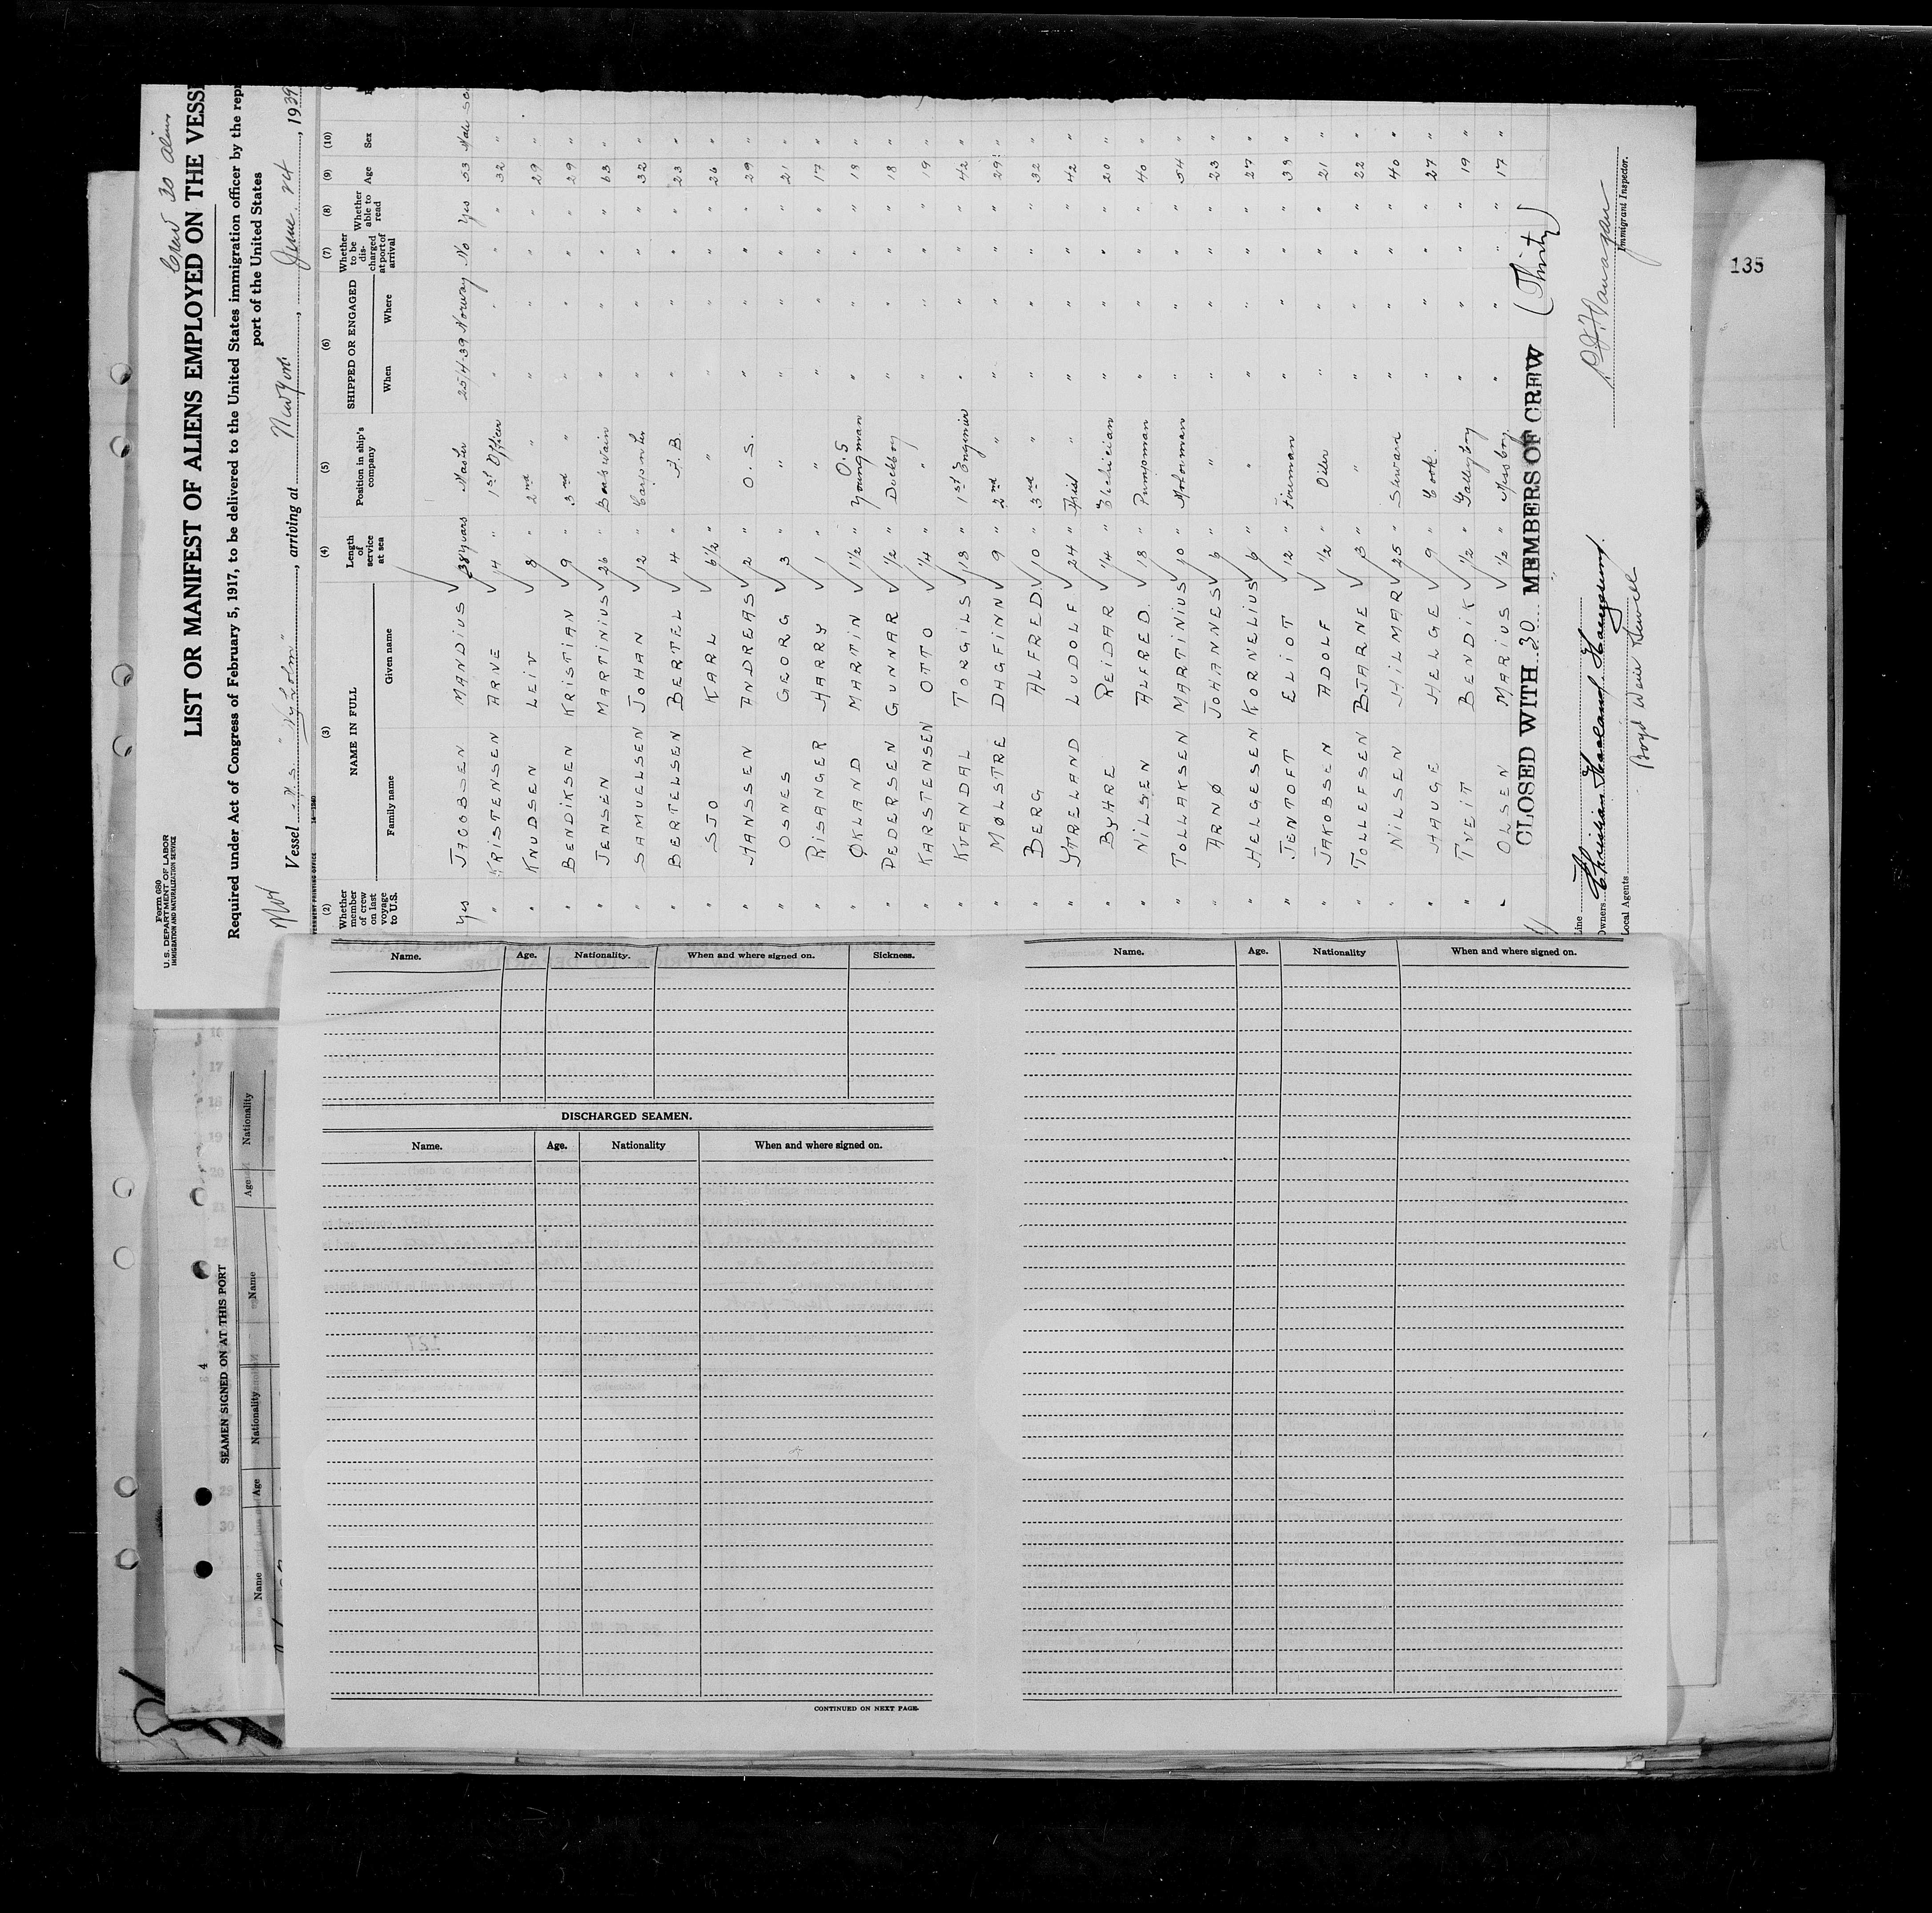 Form 680
U.S. DEPARTMENT OF LABOR
IMMIGRATION AND NATURALIZATION SERVICE
Crew 30 aliens
LIST OR MANIFEST OF ALIENS EMPLOYED ON THE VESSE
Required under Act of Congress of February 5, 1917, to be delivered to the United States immigration officer by the repr
port of the United States
Nor
Vessel M.S. "Nyholm", arriving at New York, June 24, 1939
(2) (3) (4) (5) (6) (7) (8) (9) (10)
Whether member of crew on last voyage to U.S. NAME IN FULL Family name Given name Length of service at sea Position in ship's company SHIPPED OR ENGAGED When Where Whether to be discharged at port of arrival Whether able to read Age Sex
Yes JACOBSEN MANDIUS 38 years Master 25/4-39 Norway No Yes 53 Male
" KRISTENSEN ARNE 14 " 1st Officer " " " " 32 "
" KNUDSEN LEIV 8 " 2nd " " " " " 29 "
" BENDIKSEN KRISTIAN 9 " 3rd " " " " " 29 "
" JENSEN MARTINIUS 26 " Boatswain " " " " 63 "
" SAMUELSEN JOHAN 12 " Carpenter " " " " 32 "
" BERTELSEN BERTEL 4 " A.B. " " " " 23 "
" SJO KARL 6½ " " " " " " 26 "
" HANSSEN ANDREAS 2 " O.S. " " " " 29 "
" OSNES GEORG 3 " " " " " " 21 "
" RISANGER HARRY 1 " " " " " " 17 "
" ØKLAND MARTIN 1½ " O.S Youngman " " " " 18 "
" PEDERSEN GUNNAR ½ " Deckboy " " " " 18 "
" KARSTENSEN OTTO ¼ " " " " " " 19 "
" KVANDAL TORGILS 18 " 1st Engineer " " " " 42 "
" MØLSTRE DAGFINN 9 " 2nd " " " " " 29 "
" BERG ALFRED 10 " 3rd " " " " " 32 "
" YTRELAND LUDOLF 24 " " " " " " 42 "
" BYHRE REIDAR ¼ " Electrician " " " " 20 "
" NILSEN ALFRED 18 " Pumpman " " " " 40 "
" TOLLAKSEN MARTINIUS 10 " Motorman " " " " 54 "
" ARNØ JOHANNES 6 " " " " " " 23 "
" HELGESEN KORNELIUS 6 " " " " " " 27 "
" JENTOFT ELIOT 12 " Fireman " " " " 38 "
" JAKOBSEN ADOLF ½ " Oiler " " " " 21 "
" TOLLEFSEN BJARNE 3 " " " " " " 22 "
" NILSEN HILMAR 25 " Steward " " " " 40 "
" HAUGE HELGE 9 " Cook " " " " 27 "
" TVEIT BENDIK ½ " Galleyboy " " " " 19 "
" OLSEN MARIUS ½ " Messboy " " " " 17 "
CLOSED WITH 30 MEMBERS OF CREW (Thirty)
Line
Owners Christian Haaland, Haugesund.
Local Agents Boyd Weir Sewell
Immigrant Inspector.
135
Name. Age. Nationality. When and where signed on. Sickness.
DISCHARGED SEAMEN.
Name. Age. Nationality When and where signed on.
CONTINUED ON NEXT PAGE.
Name. Age. Nationality When and where signed on.
4
SEAMEN SIGNED ON AT THIS PORT
Name Age Nationality Name Age Nationality